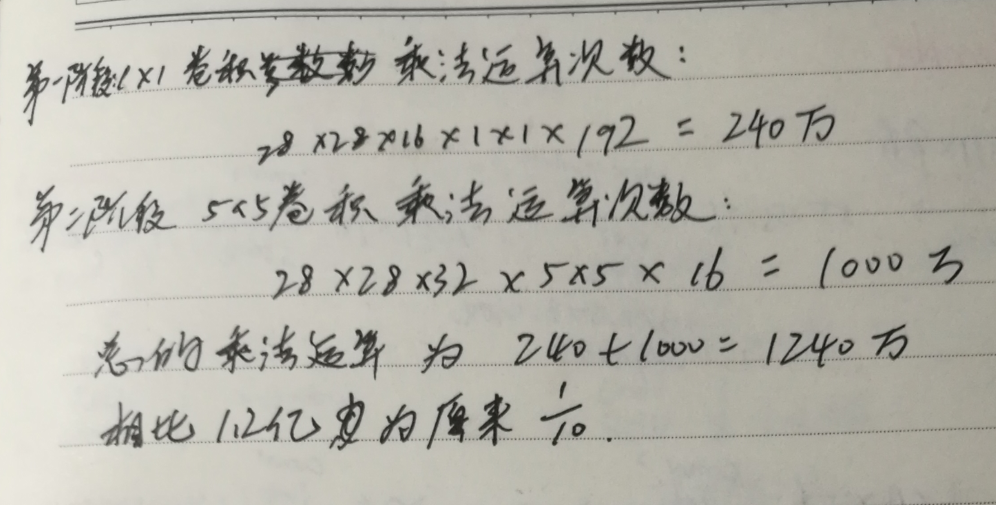 第一阶段1×1卷积乘法运算次数:
28×28×16×1×1×192=240万
第二阶段 5×5卷积 乘法运算次数:
28×28×32×5×5×16=1000万
总的乘法运算为 240+1000=1240万
相比1.2亿 为原来 1/10.